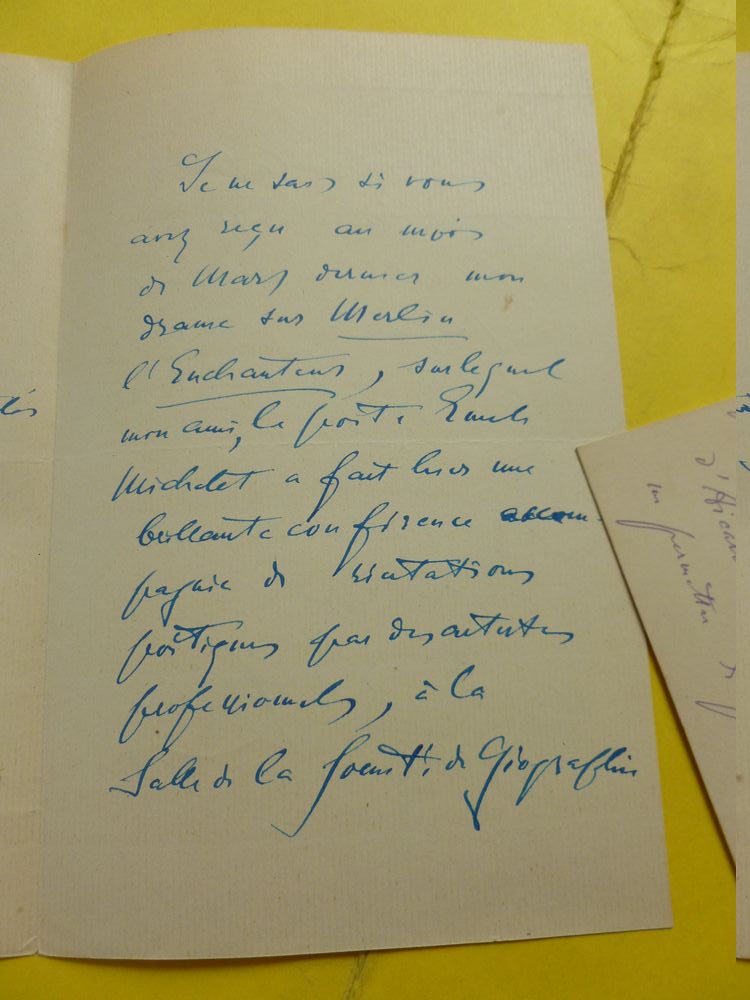 Je ne sais si vous
avez reçu au mois
de Mars dernier mon
drame sur Merlin
l'Enchanteur, sur lequel
mon ami, le poète Emile
Michelet a fait hier une
brillante conférence accom-
pagnée de récitations
poétiques par des artistes
professionnels, à la
Salle de la Société de Géographie
d'Hican
permettre